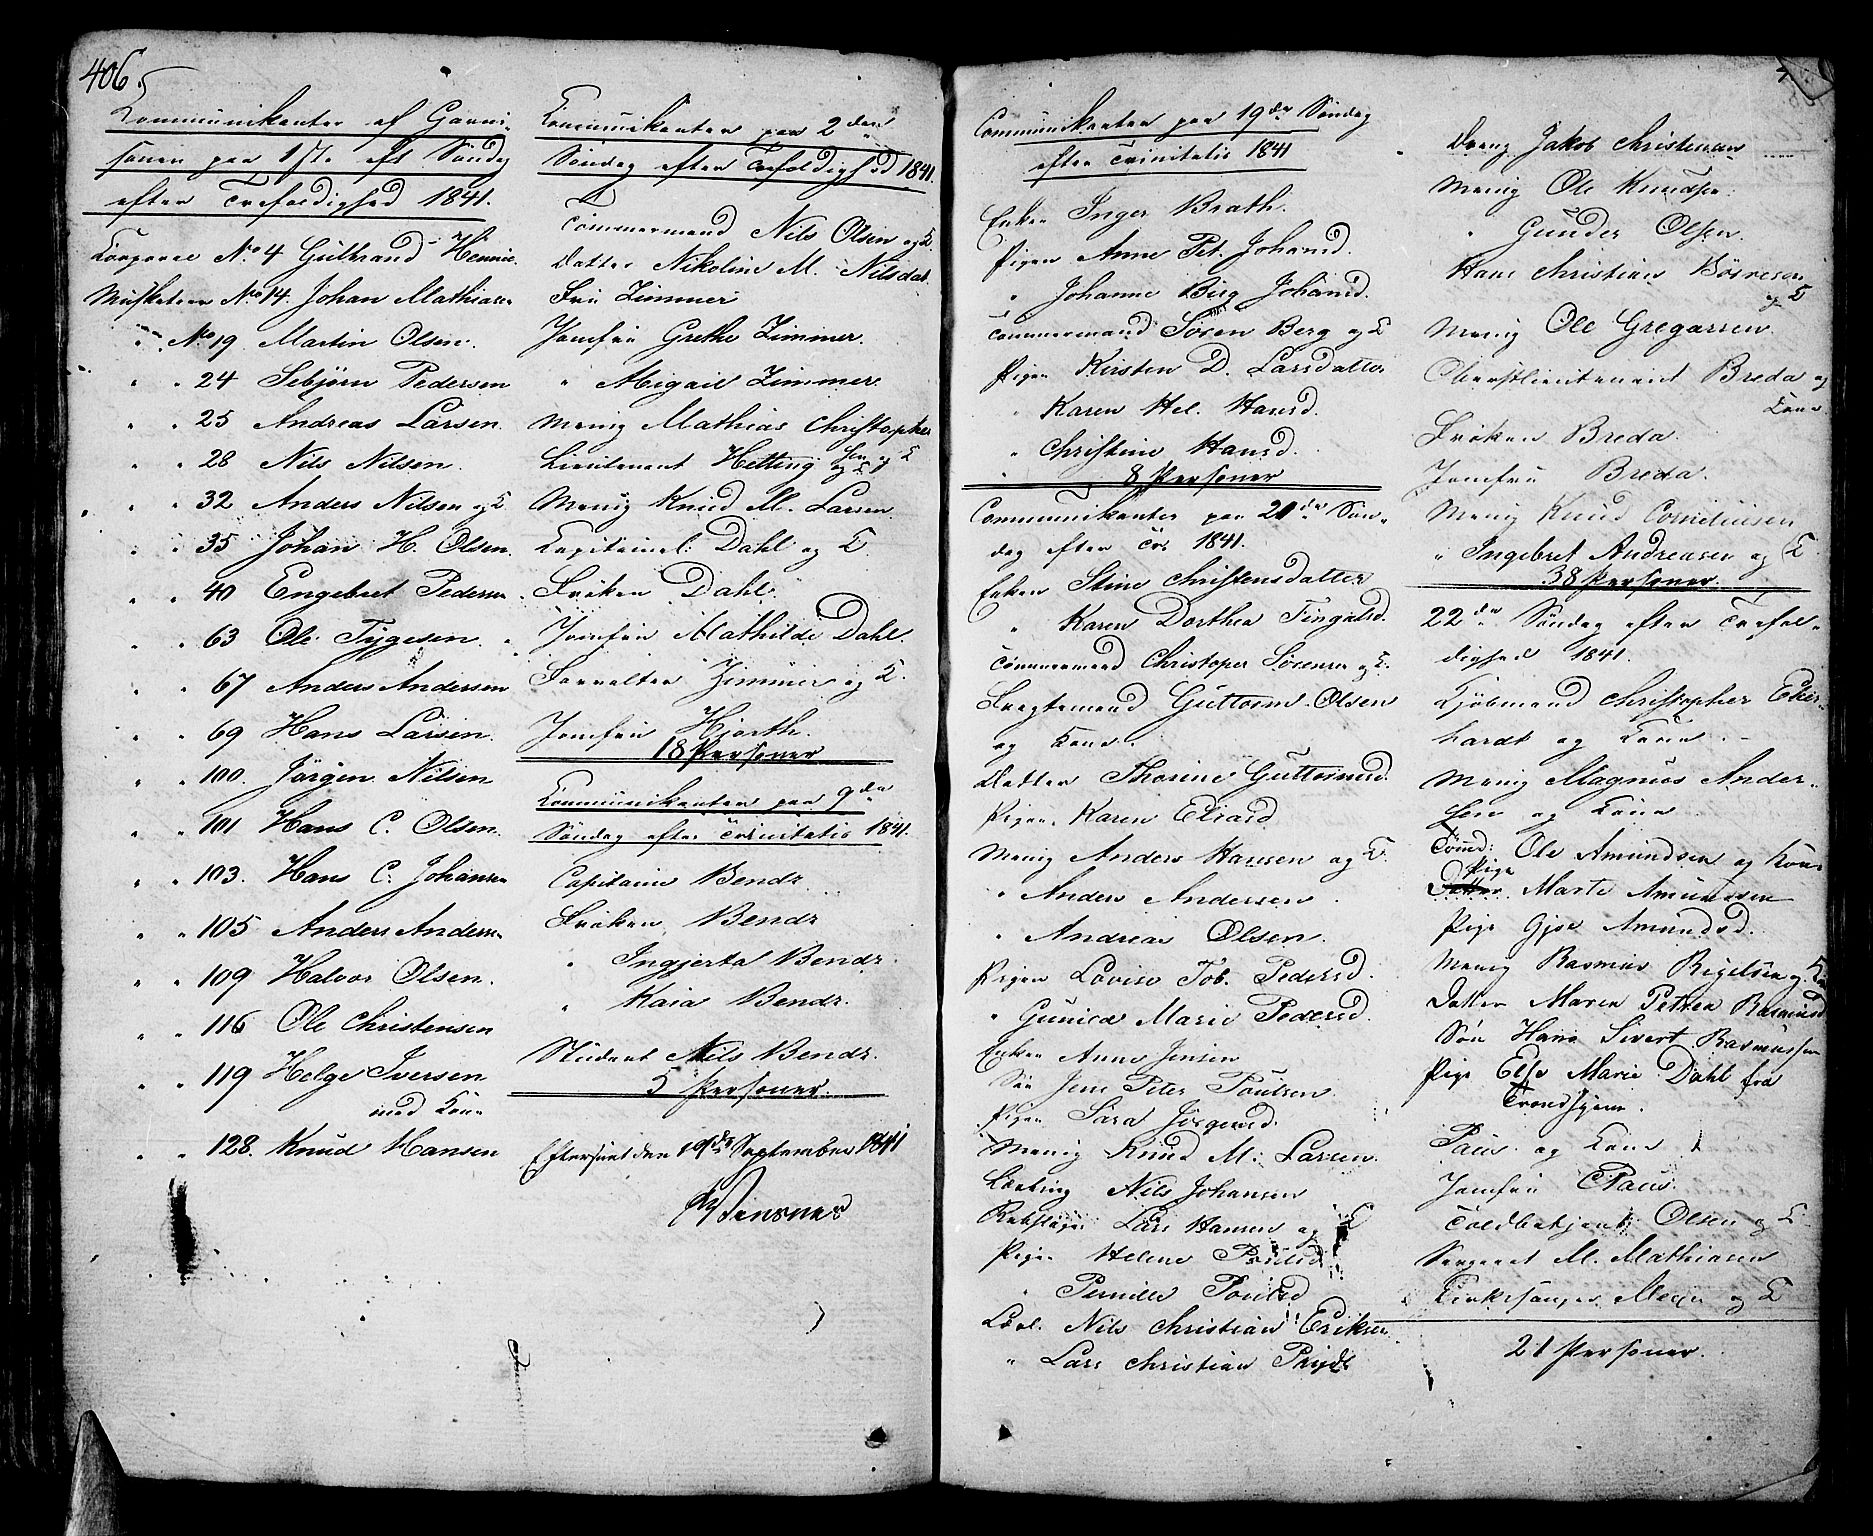 406.
Communikanter af Garni-
sonen paa 1ste Søndag
efter Trefoldighed 1841.
Corporal No 4 Gulbrand Hennin
Musketeer No 14. Johan Mathiasen
" No 19 Martin Olsen.
" " 24 Sebjörn Pedersen
" " 25 Andreas Larsen.
" " 28 Nils Nilsen.
" " 32 Anders Nilsen og K
" " 35 Johan H. Olsen.
" " 40 Engebret Pedersen
" " 63 Ole Tygesen.
" " 67 Anders Andersen
" " 69 Hans Larsen.
" " 100. Jørgen Nilsen
" " 101 Hans C. Olsen.
" " 103. Hans C. Johansen
" " 105 Anders Andersen
" " 109 Halvor Olsen.
" " 116 Ole Christensen
" " 119 Helge Iversen
med Kone
" " 128. Knud Hansen
Communikanter paa 2den
Søndag efter Trefoldighed 1841.
Tømmermand Nils Olsen og K
Datter Nikoline M. Nilsdat.
Fru Zimmer
Jomfru Grethe Zimmer.
" Abigail Zimmer
Menig Mathias Christopher
sen og K
Lieutenant Hetting og K
Menig Knud M. Larsen.
Capitainl: Dahl og K.
Frøken Dahl.
Jomfru Mathilde Dahl.
Forvalter Zimmer og K.
Jomfru Hjorth.
18 Personer
Communikanter paa 9de
Søndag efter Trinitatis 1841.
Capitain Bendz
Frøken Bendz
" Ingjerta Bendz.
" Kaia Bendz.
Student Nils Bendz.
5 Personer.
Efterseet den 19de September 1841
Communikanter paa 19de Søndag
efter Trinitatis 1841
Enken Inger Brath.
Pigen Anne Pet. Johansd.
" Johanne Birg Johansd.
Tømmermand Søren Berg og K
Pigen Kirsten D. Larsdatter
" Karen Hel. Hansd.
" Christine Hansd.
8 Personer
Communikanter paa 21de Søn-
dag efter Tre 1841.
Enken Stine Christensdatter
" Karen Dorthea Tingalsd.
Tømmermand Christoper Sørensen og K.
Fragtemand Guttorm Olsen
og Kone.
Datter Thorine Guttormsd.
Pigen Karen Eliasd
Menig Anders Hansen og K.
" Anders Andersen
" Andreas Olsen.
Pigen Lovise Tob. Pedersd.
" Gunild Marie Pedersd.
Enken Anne Jensen
Søn Jens Peter Poulsen.
Pigen Sara Jørgensd.
Menig Knud M. Larsen.
Lærling Nils Johansen
Rebslager Lars Hansen og K
Pigen Helene Poulsd
" Pernille Poulsd
Lærl. Nils Christian Eriksen
" Lars Christian
Dreng Jakob Christensen
Menig Ole Knudsen
" Gunder Olsen.
Hans Christian Børresen
og K
Menig Ole Gregersen.
Oberstlieutenant Breda og
Kone.
Frøken Breda.
Jomfru Breda.
Menig Knud Corneliusen
" Ingebret Andreasen og K
38 Personer.
22de Søndag efter Trefol-
dighed 1841.
Kjøbmand Christopher Eker-
hardt og Kone.
Menig Magnus Ander-
sen og Kone
Tømd: Ole Amundsen og Kone
Pige
Datter Marte Amundsen
Pige Gjse Amundsd.
Menig Rasmus Bøgelsen og K
Datter Maren Petrea Rasmusd
Søn Hans Sivert Rasmussen
Pige Else Marie Dahl fra
Trondhjem.
Paus og Kone
Jomfru Paus.
Toldbetjent Olsen og K
Sergeant M. Mathiasen
Kirkesanger og K
21 Personer.